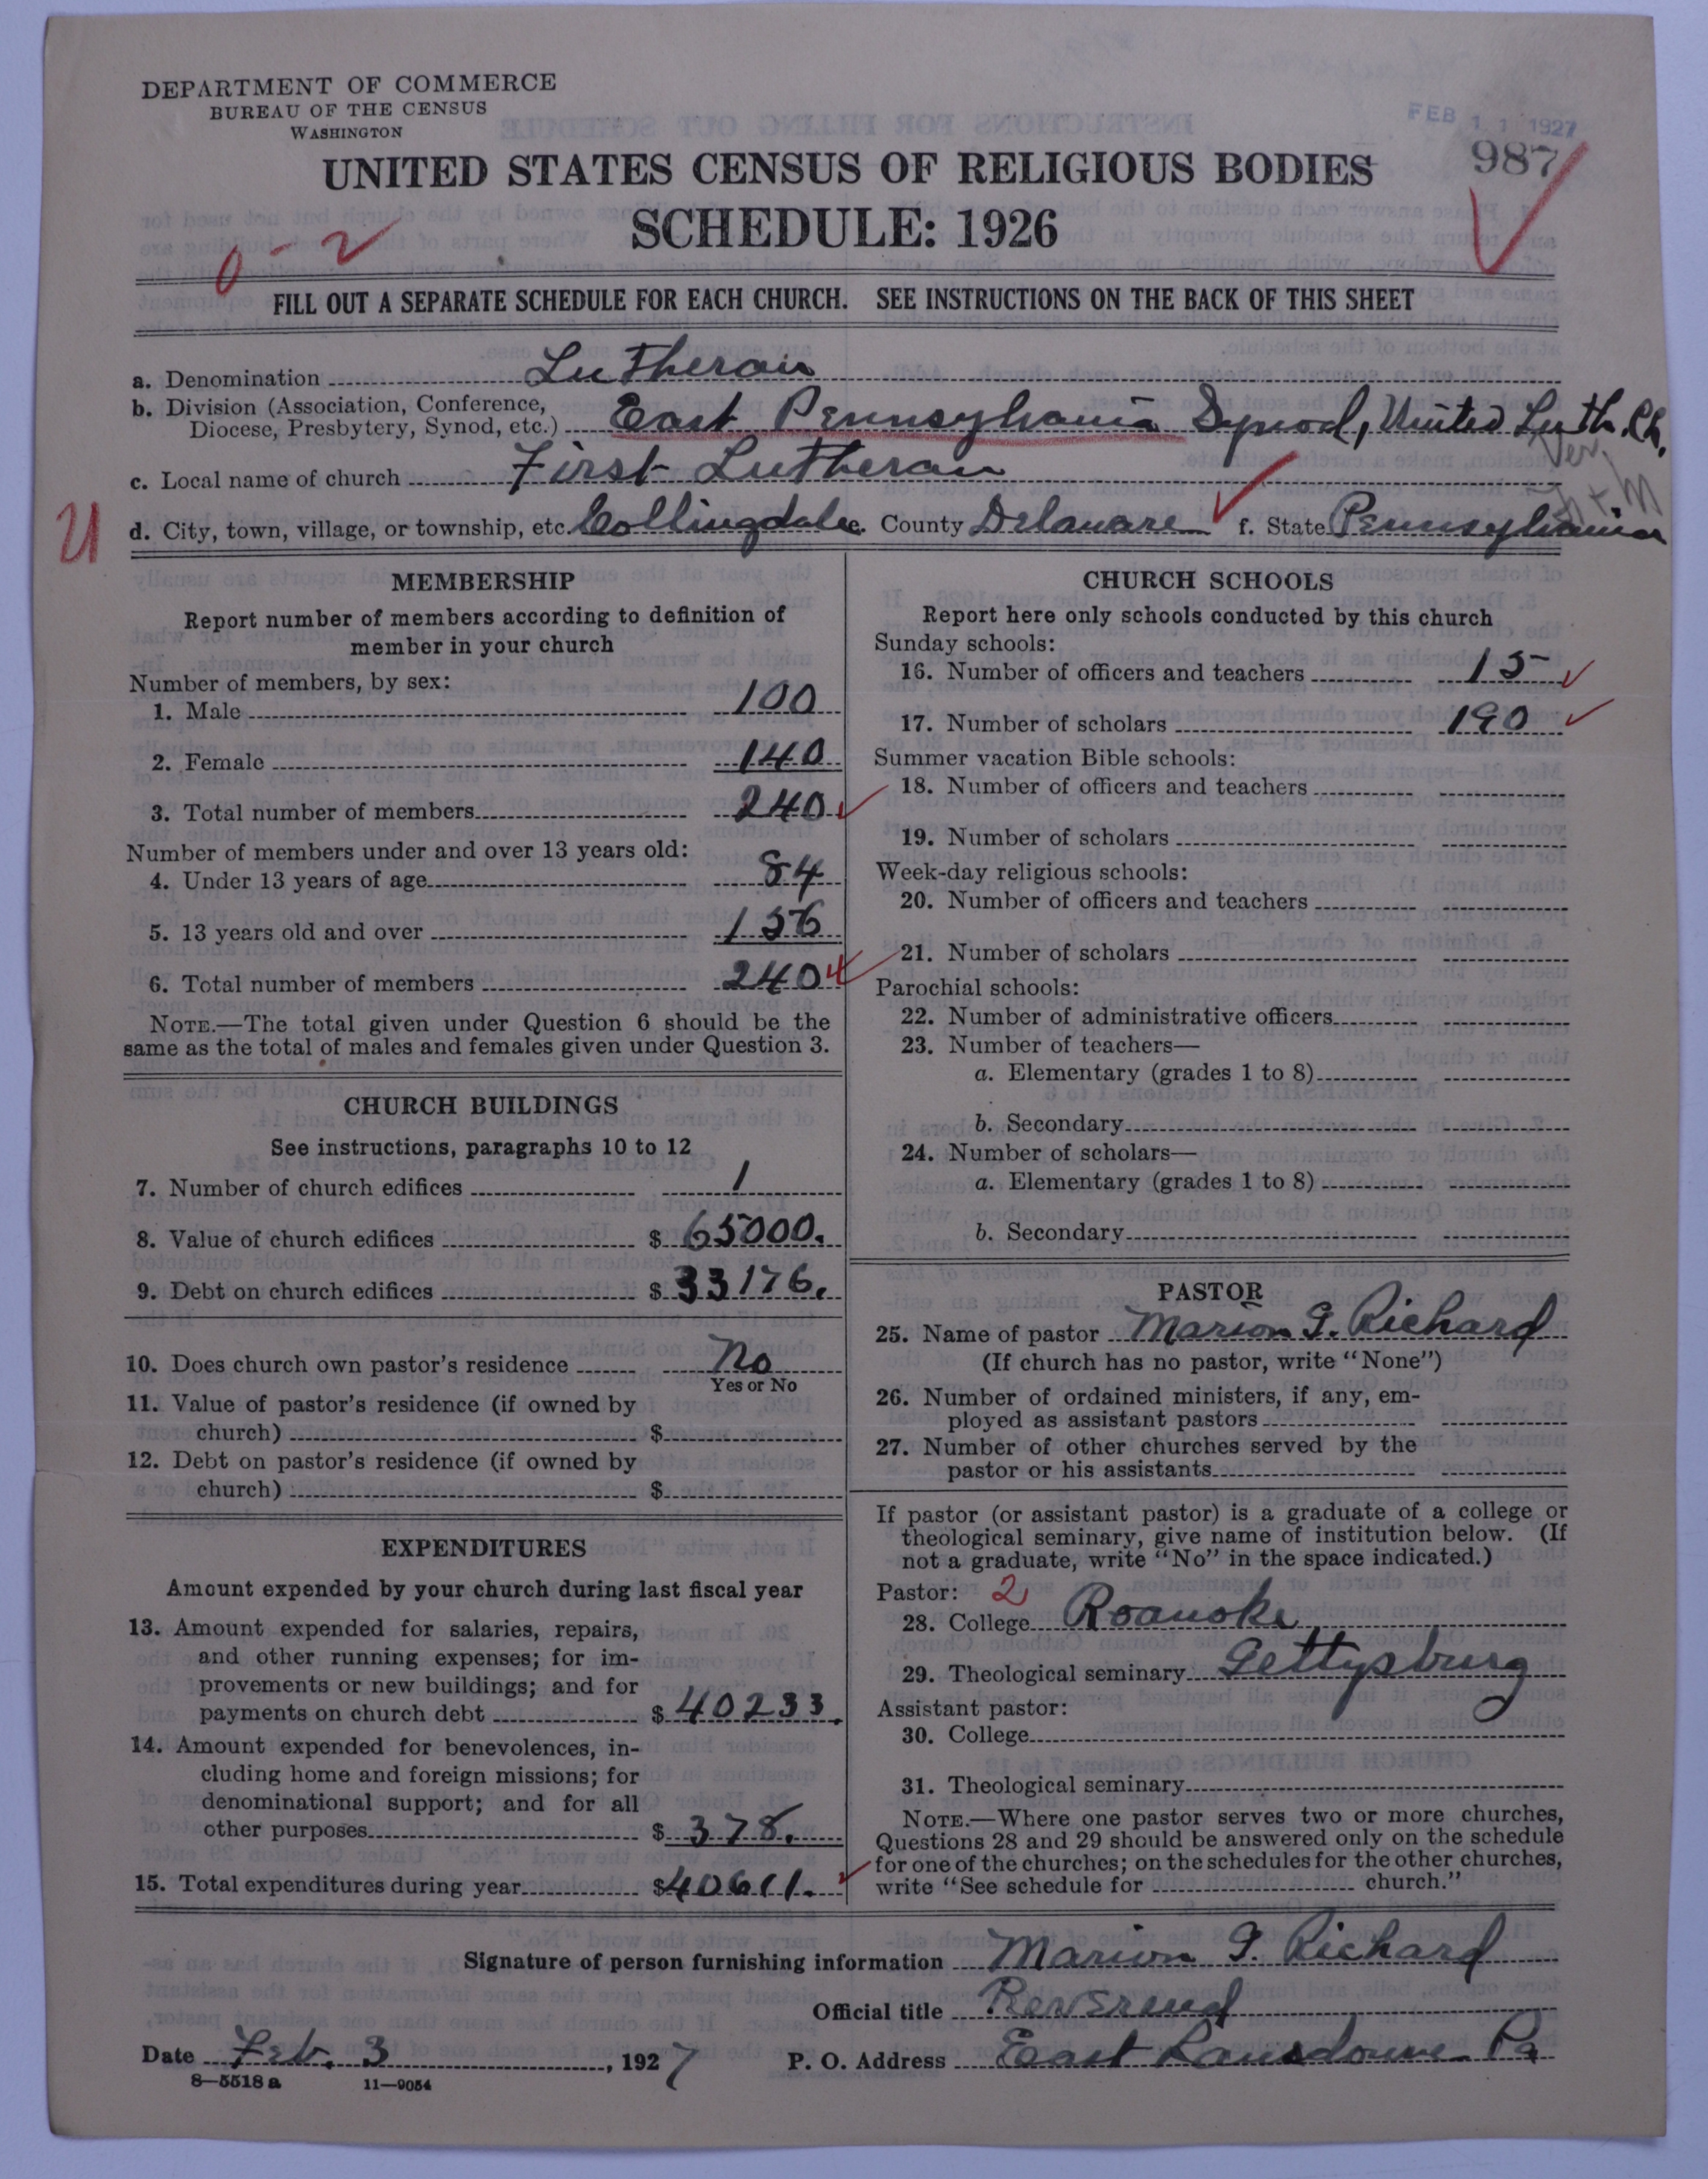 DEPARTMENT OF COMMERCE
BUREAU OF THE CENSUS
WASHINGTON
FEB 11 1927
987
UNITED STATES CENSUS OF RELIGIOUS BODIES
SCHEDULE: 1926
0-2
FILL OUT A SEPARATE SCHEDULE FOR EACH CHURCH. SEE INSTRUCTIONS ON THE BACK OF THIS SHEET
a. Denomination Lutheran
b. Division (Association, Conference,
Diocese, Presbytery, Synod, etc.) East Pennsylvania Synod, United Luth. Ch.
c. Local name of church First Lutheran
d. City, town, village, or township, etc. Collingdale e. County Delaware f. State Pennsylvania
MEMBERSHIP
Report number of members according to definition of
member in your church
Number of members, by sex:
1. Male 100
2. Female 140
3. Total number of members 240
Number of members under and over 13 years old:
4. Under 13 years of age 84
5. 13 years old and over 156
6. Total number of members 240
NOTE.—The total given under Question 6 should be the
same as the total of males and females given under Question 3.
CHURCH BUILDINGS
See instructions, paragraphs 10 to 12
7. Number of church edifices 1
8. Value of church edifices $ 65000.
9. Debt on church edifices $ 33176.
10. Does church own pastor's residence No
Yes or No
11. Value of pastor's residence (if owned by
church) $
12. Debt on pastor's residence (if owned by
church) $
EXPENDITURES
Amount expended by your church during last fiscal year
13. Amount expended for salaries, repairs,
and other running expenses; for im-
provements or new buildings; and for
payments on church debt $ 40233.
14. Amount expended for benevolences, in-
cluding home and foreign missions; for
denominational support; and for all
other purposes $ 378.
15. Total expenditures during year $ 40611.
CHURCH SCHOOLS
Report here only schools conducted by this church
Sunday schools:
16. Number of officers and teachers 15
17. Number of scholars 190
Summer vacation Bible schools:
18. Number of officers and teachers
19. Number of scholars
Week-day religious schools:
20. Number of officers and teachers
21. Number of scholars
Parochial schools:
22. Number of administrative officers
23. Number of teachers—
a. Elementary (grades 1 to 8)
b. Secondary
24. Number of scholars—
a. Elementary (grades 1 to 8)
b. Secondary
PASTOR
25. Name of pastor Marion G. Richard
(If church has no pastor, write "None")
26. Number of ordained ministers, if any, em-
ployed as assistant pastors
27. Number of other churches served by the
pastor or his assistants
If pastor (or assistant pastor) is a graduate of a college or
theological seminary, give name of institution below. (If
not a graduate, write "No" in the space indicated.)
Pastor: 2
28. College Roanoke
29. Theological seminary Gettysburg
Assistant pastor:
30. College
31. Theological seminary
NOTE.—Where one pastor serves two or more churches,
Questions 28 and 29 should be answered only on the schedule
for one of the churches; on the schedules for the other churches,
write "See schedule for church."
Signature of person furnishing information Marion G. Richard
Official title Reverend
Date Feb. 3, 1927 P. O. Address East Lansdowne Pa
8—5518 a 11—9054